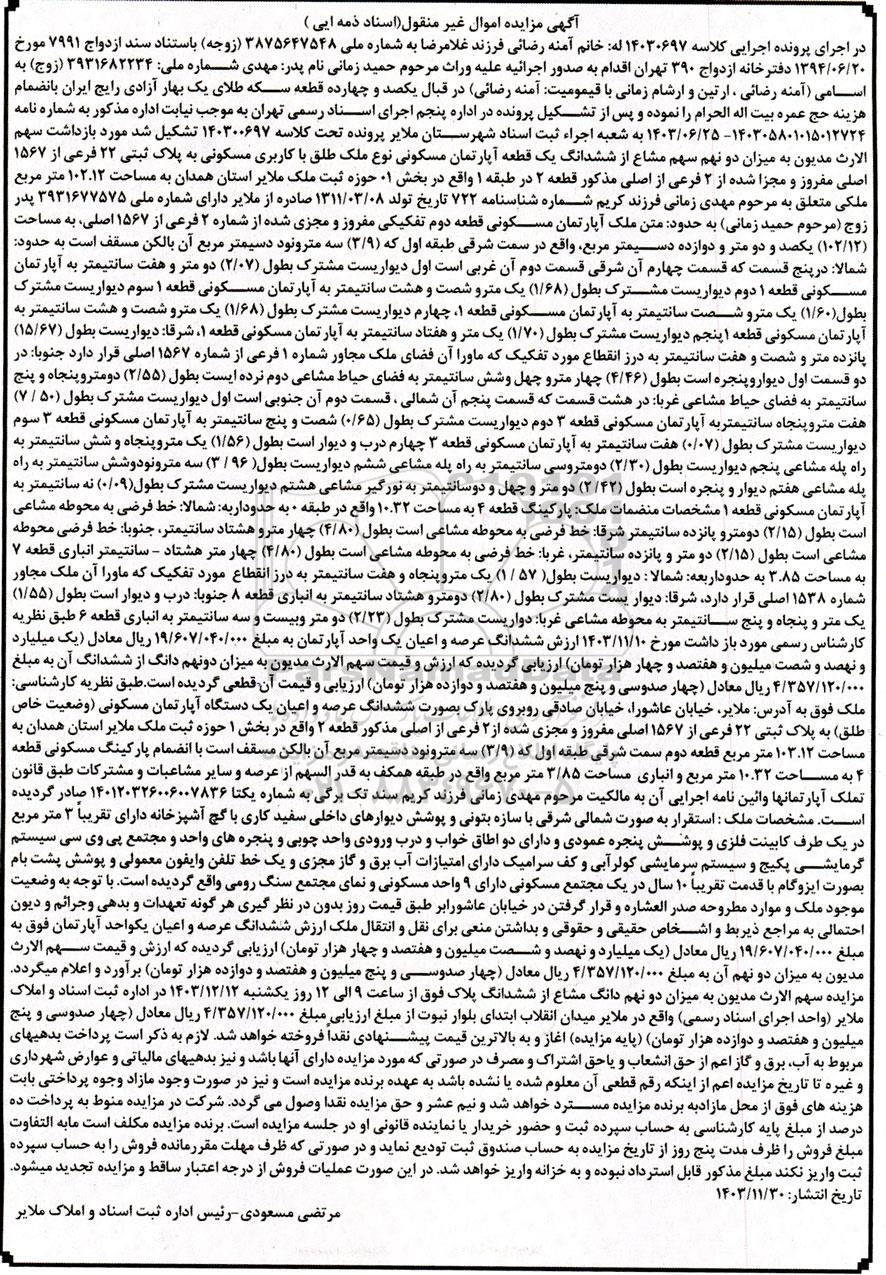 آگهی مزایده اموال غیر منقول(اسناد ذمه ایی )
در اجرای پرونده اجرایی کلاسه ۱۴۰۳۰۶۹۷ له: خانم آمنه رضائی فرزند غلامرضا به شماره ملی ۳۸۷۵۶۴۷۵۴۸ (زوجه) باستناد سند ازدواج ۷۹۹۱ مورخ
۱۳۹۴/۰۶/۲۰ دفترخانه ازدواج ۳۹۰ تهران اقدام به صدور اجرائیه علیه وراث مرحوم حمید زمانی نام پدر: مهدی شماره ملی: ۳۹۳۱۶۸۲۲۳۴ (زوج) به
اسامی (آمنه رضائی ، ارتین و ارشام زمانی با قیمومیت: آمنه رضائی) در قبال یکصد و چهارده قطعه سکه طلای یک بهار آزادی رایج ایران بانضمام
هزینه حج عمره بیت اله الحرام را نموده و پس از تشکیل پرونده در اداره پنجم اجرای اسناد رسمی تهران به موجب نیابت اداره مذکور به شماره نامه
۱۴۰۳۰۵۸۰۱۰۱۵۰۱۲۷۲۴- ۱۴۰۳/۰۶/۲۵ به شعبه اجراء ثبت اسناد شهرستان ملایر پرونده تحت کلاسه ۱۴۰۳۰۰۶۹۷ تشکیل شد مورد بازداشت سهم
الارث مدیون به میزان دو نهم سهم مشاع از ششدانگ یک قطعه آپارتمان مسکونی نوع ملک طلق با کاربری مسکونی به پلاک ثبتی ۲۲ فرعی از ۱۵۶۷
اصلی مفروز و مجزا شده از ۲ فرعی از اصلی مذکور قطعه ۲ در طبقه ۱ واقع در بخش ۰۱ حوزه ثبت ملک ملایر استان همدان به مساحت ۱۰۲.۱۲ متر مربع
ملکی متعلق به مرحوم مهدی زمانی فرزند کریم شماره شناسنامه ۷۲۲ تاریخ تولد ۱۳۱۱/۰۳/۰۸ صادره از ملایر دارای شماره ملی ۳۹۳۱۶۷۷۵۷۵ پدر
زوج (مرحوم حمید زمانی) به حدود: متن ملک آپارتمان مسکونی قطعه دوم تفکیکی مفروز و مجزی شده از شماره ۲ فرعی از ۱۵۶۷ اصلی، به مساحت
(۱۰۲/۱۲) یکصد و دو متر و دوازده دسیمتر مربع، واقع در سمت شرقی طبقه اول که (۳/۹) سه مترونود دسیمتر مربع آن بالکن مسقف است به حدود:
شمالا: درپنج قسمت که قسمت چهارم آن شرقی قسمت دوم آن غربی است اول دیواریست مشترک بطول (۲/۰۷) دو متر و هفت سانتیمتر به آپارتمان
مسکونی قطعه ۱ دوم دیواریست مشترک بطول (۱/۶۸) یک مترو شصت و هشت سانتیمتر به آپارتمان مسکونی قطعه ۱ سوم دیواریست مشترک
بطول(۱/۶۰) یک مترو شصت سانتیمتر به آپارتمان مسکونی قطعه ۱، چهارم دیواریست مشترک بطول (۱/۶۸) یک مترو شصت و هشت سانتیمتر به
آپارتمان مسکونی قطعه ۱پنجم دیواریست مشترک بطول (۱/۷۰) یک متر و هفتاد سانتیمتر به آپارتمان مسکونی قطعه ۱، شرقا: دیواریست بطول (۱۵/۶۷)
پانزده متر و شصت و هفت سانتیمتر به درز انقطاع مورد تفکیک که ماورا آن فضای ملک مجاور شماره ۱ فرعی از شماره ۱۵۶۷ اصلی قرار دارد جنوبا: در
دو قسمت اول دیواروپنجره است بطول (۴/۴۶) چهار مترو چهل وشش سانتیمتر به فضای حیاط مشاعی دوم نرده ایست بطول (۲/۵۵) دومتروپنجاه و پنج
سانتیمتر به فضای حیاط مشاعی غربا: در هشت قسمت که قسمت پنجم آن شمالی ، قسمت دوم آن جنوبی است اول دیواریست مشترک بطول (۵۰ / ۷)
هفت متروپنجاه سانتیمتربه آپارتمان مسکونی قطعه ۳ دوم دیواریست مشترک بطول (۰/۶۵) شصت و پنج سانتیمتر به آپارتمان مسکونی قطعه ۳ سوم
دیواریست مشترک بطول (۰/۰۷) هفت سانتیمتر به آپارتمان مسکونی قطعه ۳ چهارم درب و دیوار است بطول (۱/۵۶) یک متروپنجاه و شش سانتیمتر به
راه پله مشاعی پنجم دیواریست بطول (۲/۳۰) دومتروسی سانتیمتر به راه پله مشاعی ششم دیواریست بطول( ۹۶ / ۳) سه مترونودوشش سانتیمتر به راه
پله مشاعی هفتم دیوار و پنجره است بطول (۲/۴۲) دو متر و چهل و دوسانتیمتر به نورگیر مشاعی هشتم دیواریست مشترک بطول(۰/۰۹) نه سانتیمتر به
آپارتمان مسکونی قطعه ۱ مشخصات منضمات ملک: پارکینگ قطعه ۴ به مساحت ۱۰.۳۲ واقع در طبقه ۰ به حدوداربه: شمالا: خط فرضی به محوطه مشاعی
است بطول (۲/۱۵) دومترو پانزده سانتیمتر شرقا: خط فرضی به محوطه مشاعی است بطول (۴/۸۰) چهار مترو هشتاد سانتیمتر، جنوبا: خط فرضی محوطه
مشاعی است بطول (۲/۱۵) دو متر و پانزده سانتیمتر، غربا: خط فرضی به محوطه مشاعی است بطول (۴/۸۰) چهار متر هشتاد - سانتیمتر انباری قطعه ۷
به مساحت ۳.۸۵ به حدوداربعه: شمالا : دیواریست بطول( ۵۷ / ۱) یک متروپنجاه و هفت سانتیمتر به درز انقطاع مورد تفکیک که ماورا آن ملک مجاور
شماره ۱۵۳۸ اصلی قرار دارد، شرقا: دیوار یست مشترک بطول (۲/۸۰) دومترو هشتاد سانتیمتر به انباری قطعه ۸ جنوبا: درب و دیوار است بطول (۱/۵۵)
یک متر و پنجاه و پنج سانتیمتر به محوطه مشاعی غربا: دواریست مشترک بطول (۲/۲۳) دو متر وبیست و سه سانتیمتر به انباری قطعه ۶ طبق نظریه
کارشناس رسمی مورد باز داشت مورخ ۱۴۰۳/۱۱/۱۰ ارزش ششدانگ عرصه و اعیان یک واحد آپارتمان به مبلغ ۱۹/۶۰۷/۰۴۰/۰۰۰ ریال معادل (یک میلیارد
و نهصد و شصت میلیون و هفتصد و چهار هزار تومان) ارزیابی گردیده که ارزش و قیمت سهم الارث مدیون به میزان دونهم دانگ از ششدانگ آن به مبلغ
۴/۳۵۷/۱۲۰/۰۰۰ ریال معادل (چهار صدوسی و پنج میلیون و هفتصد و دوازده هزار تومان) ارزیابی و قیمت آن قطعی گردیده است.طبق نظریه کارشناسی:
ملک فوق به آدرس: ملایر، خیابان عاشورا، خیابان صادقی روبروی پارک بصورت ششدانگ عرصه و اعیان یک دستگاه آپارتمان مسکونی (وضعیت خاص
طلق) به پلاک ثبتی ۲۲ فرعی از ۱۵۶۷ اصلی مفروز و مجزی شده از۲ فرعی از اصلی مذکور قطعه ۲ واقع در بخش ۱ حوزه ثبت ملک ملایر استان همدان به
مساحت ۱۰۳.۱۲ متر مربع قطعه دوم سمت شرقی طبقه اول که (۳/۹) سه مترونود دسیمتر مربع آن بالکن مسقف است با انضمام پارکینگ مسکونی قطعه
۴ به مساحت ۱۰.۳۲ متر مربع و انباری مساحت ۳/۸۵ متر مربع واقع در طبقه همکف به قدر السهم از عرصه و سایر مشاعیات و مشترکات طبق قانون
تملک آپارتمانها وائین نامه اجرایی آن به مالکیت مرحوم مهدی زمانی فرزند کریم سند تک برگی به شماره یکتا ۱۴۰۱۲۰۳۲۶۰۰۶۰۰۷۸۳۶ صادر گردیده
است. مشخصات ملک : استقرار به صورت شمالی شرقی با سازه بتونی و پوشش دیوارهای داخلی سفید کاری با گچ آشپزخانه دارای تقریباً ۳ متر مربع
در یک طرف کابینت فلزی و پوشش پنجره عمودی و دارای دو اطاق خواب و درب ورودی واحد چوبی و پنجره های واحد و مجتمع پی وی سی سیستم
گرمایشی پکیج و سیستم سرمایشی کولرآبی و کف سرامیک دارای امتیازات آب برق و گاز مجزی و یک خط تلفن وایفون معمولی و پوشش پشت بام
بصورت ایزوگام با قدمت تقریباً ۱۰ سال در یک مجتمع مسکونی دارای ۹ واحد مسکونی و نمای مجتمع سنگ رومی واقع گردیده است. با توجه به وضعیت
موجود ملک و موارد مطروحه صدر العشاره و قرار گرفتن در خیابان عاشورابر طبق قیمت روز بدون در نظر گیری هر گونه تعهدات و بدهی وجرائم و دیون
احتمالی به مراجع ذیربط و اشخاص حقیقی و حقوقی و بداشتن منعی برای نقل و انتقال ملک ارزش ششدانگ عرصه و اعیان یکواحد آپارتمان فوق به
مبلغ ۱۹/۶۰۷/۰۴۰/۰۰۰ ریال معادل (یک میلیارد و نهصد و شصت میلیون و هفتصد و چهار هزار تومان) ارزیابی گردیده که ارزش و قیمت سهم الارث
مدیون به میزان دو نهم آن به مبلغ ۴/۳۵۷/۱۲۰/۰۰۰ ریال معادل (چهار صدوسی و پنج میلیون و هفتصد و دوازده هزار تومان) برآورد و اعلام میگردد.
مزایده سهم الارث مدیون به میزان دو نهم دانگ مشاع از ششدانگ پلاک فوق از ساعت ۹ الی ۱۲ روز یکشنبه ۱۴۰۳/۱۲/۱۲ در اداره ثبت اسناد و املاک
ملایر (واحد اجرای اسناد رسمی) واقع در ملایر میدان انقلاب ابتدای بلوار نبوت از مبلغ ارزیابی مبلغ ۴/۳۵۷/۱۲۰/۰۰۰ ریال معادل (چهار صدوسی و پنج
میلیون و هفتصد و دوازده هزار تومان) (پایه مزایده) اغاز و به بالاترین قیمت پیشنهادی نقداً فروخته خواهد شد. لازم به ذکر است پرداخت بدهیهای
مربوط به آب، برق و گاز اعم از حق انشعاب و یاحق اشتراک و مصرف در صورتی که مورد مزایده دارای آنها باشد و نیز بدهیهای مالیاتی و عوارض شهرداری
و غیره تا تاریخ مزایده اعم از اینکه رقم قطعی آن معلوم شده یا نشده باشد به عهده برنده مزایده است و نیز در صورت وجود مازاد وجوه پرداختی بابت
هزینه های فوق از محل مازادبه برنده مزایده مسترد خواهد شد و نیم عشر و حق مزایده نقدا وصول می گردد. شرکت در مزایده منوط به پرداخت ده
درصد از مبلغ پایه کارشناسی به حساب سپرده ثبت و حضور خریدار یا نماینده قانونی او در جلسه مزایده است. برنده مزایده مکلف است مابه التفاوت
مبلغ فروش را ظرف مدت پنج روز از تاریخ مزایده به حساب صندوق ثبت تودیع نماید و در صورتی که ظرف مهلت مقررمانده فروش را به حساب سپرده
ثبت واریز نکند مبلغ مذکور قابل استرداد نبوده و به خزانه واریز خواهد شد. در این صورت عملیات فروش از درجه اعتبار ساقط و مزایده تجدید میشود.
تاریخ انتشار: ۱۴۰۳/۱۱/۳۰
مرتضی مسعودی-رئیس اداره ثبت اسناد و املاک ملایر